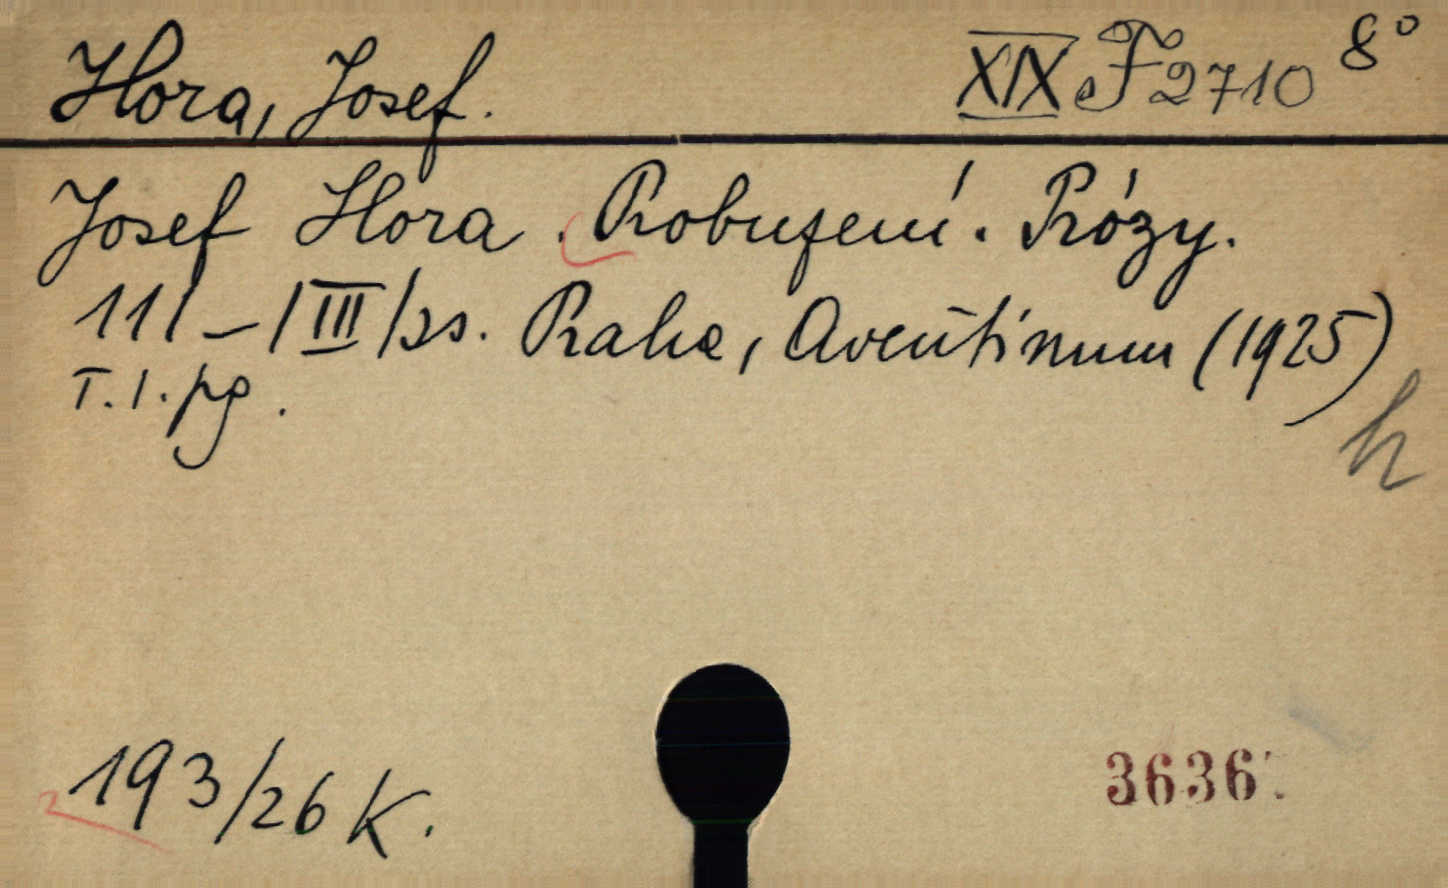 Hora, Josef. XIX F 2710 8°
Josef Hora. Probuzení. Prózy.
111-/III/ss. Praha, Aventinum (1925)
T. 1. pg.
h
193/26 K.
3636